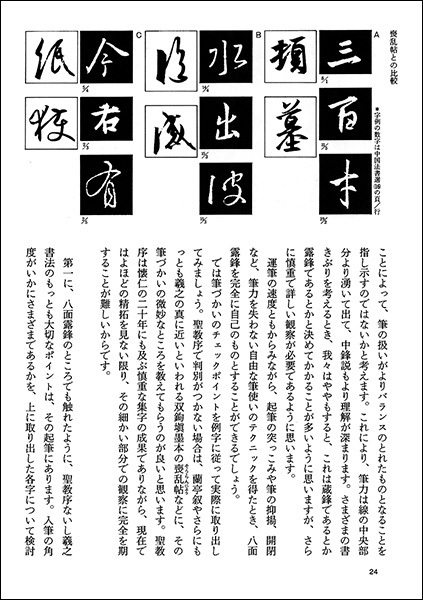 喪乱帖との比較
*字例の数字は中国法書選16の頁/行
A
三
百
頓
墓
B
水
出
C
今
右
有
紙
ことによって、筆の扱いがよりバランスのとれたものとなることを
指し示すのではないかと考えます。これにより、筆力は線の中央部
分より湧いて出て、中鋒説もより理解が深まります。さまざまの書
きぶりを考えるとき、我々はややもすると、これは蔵鋒であるとか
露鋒であるとかと決めてかかることが多いように思いますが、さら
に慎重で詳しい観察が必要であるように思います。
運筆の速度ともからみながら、起筆の突っこみや筆の抑揚、開閉
など、筆力を失わない自由な筆使いのテクニックを得たとき、八面
露鋒を完全に自己のものとすることができるでしょう。
では筆づかいのチェックポイントを例字に従って実際に取り出し
てみましょう。聖教序で判別がつかない場合は、蘭亭叙やさらにも
っとも羲之の真に近いといわれる双鉤塡墨本の喪乱帖などに、その
筆づかいの微妙なところを教えてもらうのが良いと思います。聖教
序は懐仁の二十年にも及ぶ慎重な集字の成果でありながら、現在で
はよほどの精拓を見ない限り、その細かい部分での観察に完全を期
することが難しいからです。
第一に、八面露鋒のところでも触れたように、聖教序ないし羲之
書法のもっとも大切なポイントは、その起筆にあります。入筆の角
度がいかにさまざまであるかを、上に取り出した各字について検討
24